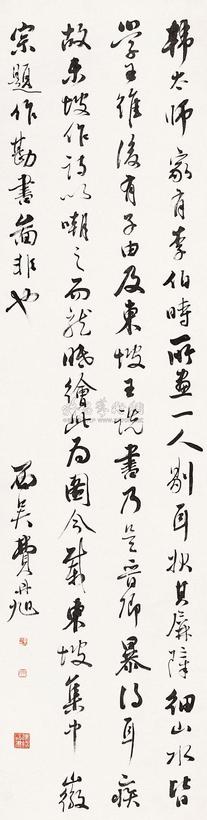 韩太师家有李伯時所画一人剔耳状其屏障细山水皆
學王维後有子由及東坡王詵書乃是晋卿暴得耳疾
故东坡作詩以嘲之而龙眠繪此为圖今载東坡集中 徽
宗题作勘書圖非也
西吴费丹旭